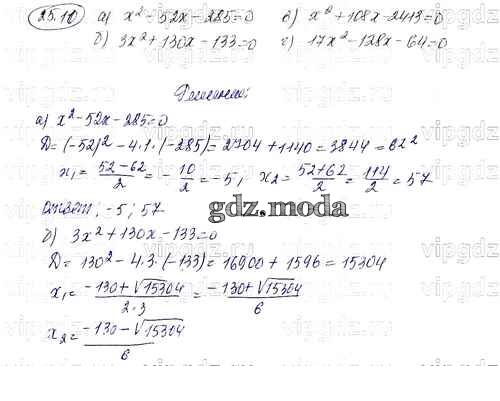 25.10 а) x² - 52x - 285 = 0 в) x² + 108x - 2413 = 0
б) 3x² + 130x - 133 = 0 г) 17x² - 128x - 64 = 0
Решение:
а) x² - 52x - 285 = 0
D = (-52)² - 4·1·(-285) = 2704 + 1140 = 3844 = 62²
x₁ = (52 - 62)/2 = -10/2 = -5; x₂ = (52 + 62)/2 = 114/2 = 57
Ответ: -5; 57
gdz.moda
б) 3x² + 130x - 133 = 0
D = 130² - 4·3·(-133) = 16900 + 1596 = 15304
x₁ = (-130 + √15304)/(2·3) = (-130 + √15304)/6
x₂ = (-130 - √15304)/6
vipgdz.ru